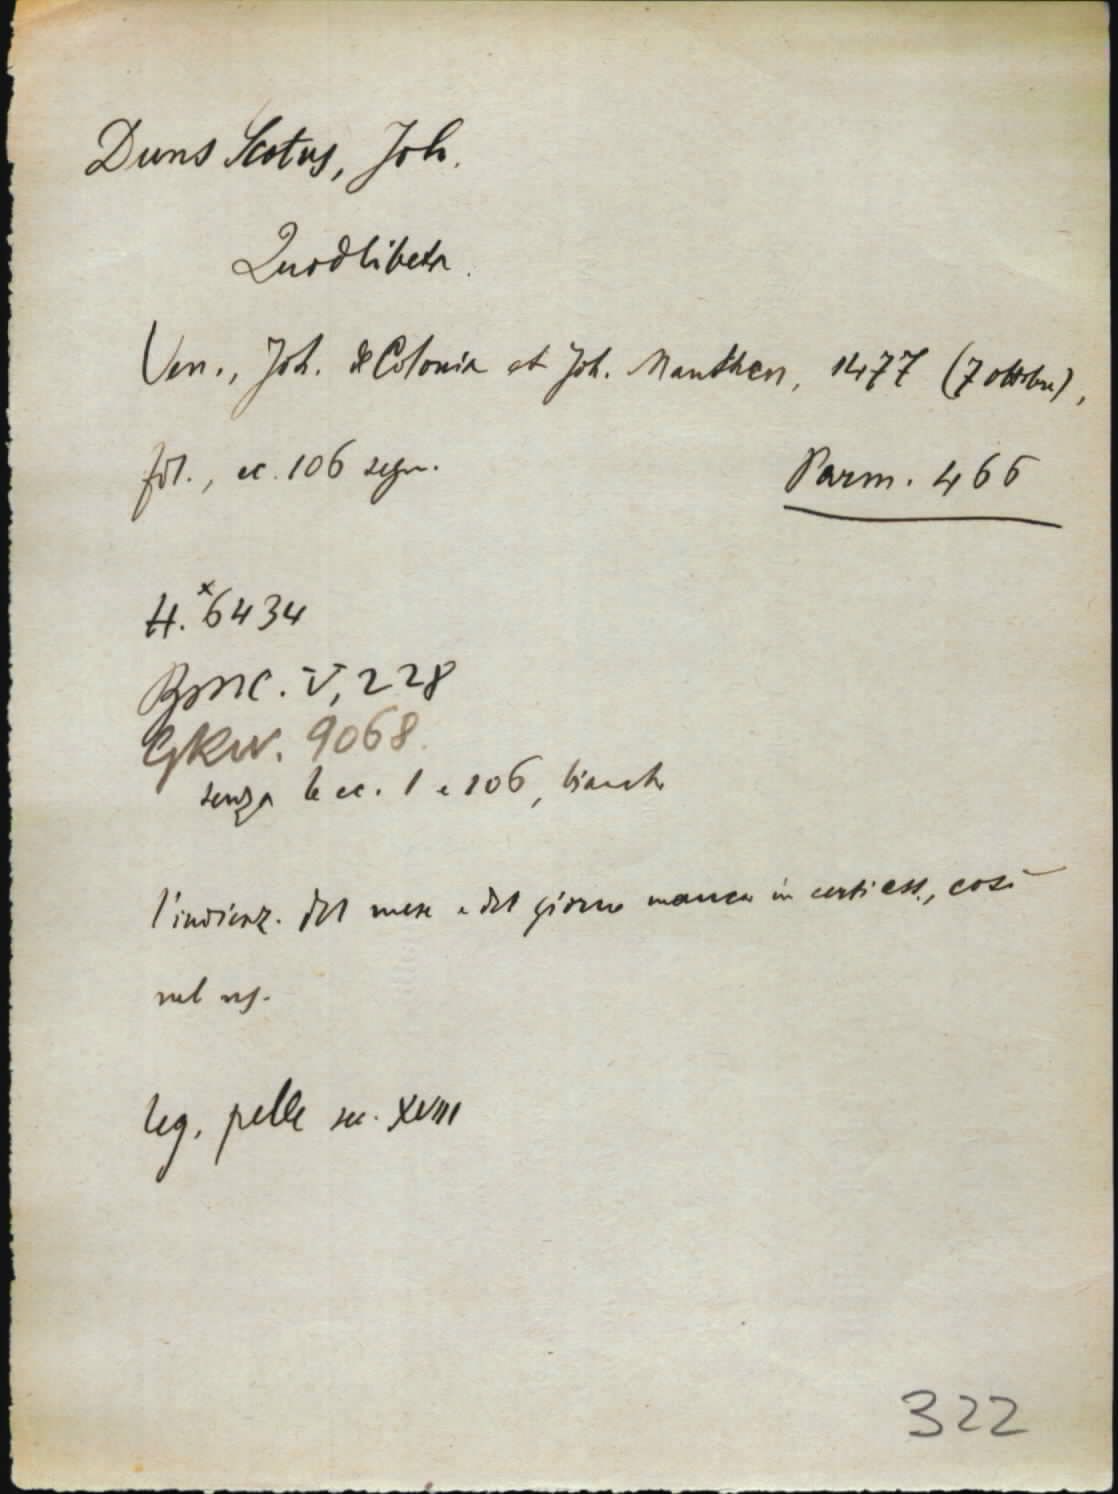 Duns Scotus, Joh.
Quodlibeta.
Ven., Joh. de Colonia et Joh. Manthen, 1477 (7 ottobre),
fol., cc. 106 segn.
Parm. 466
H.*6434
BMC. V, 228
GKW. 9068.
senza le cc. 1 e 106, bianche
l'indicaz. del mese e del giorno manca in certi ess., così
nel ns.
leg. pelle sec. XVIII
322